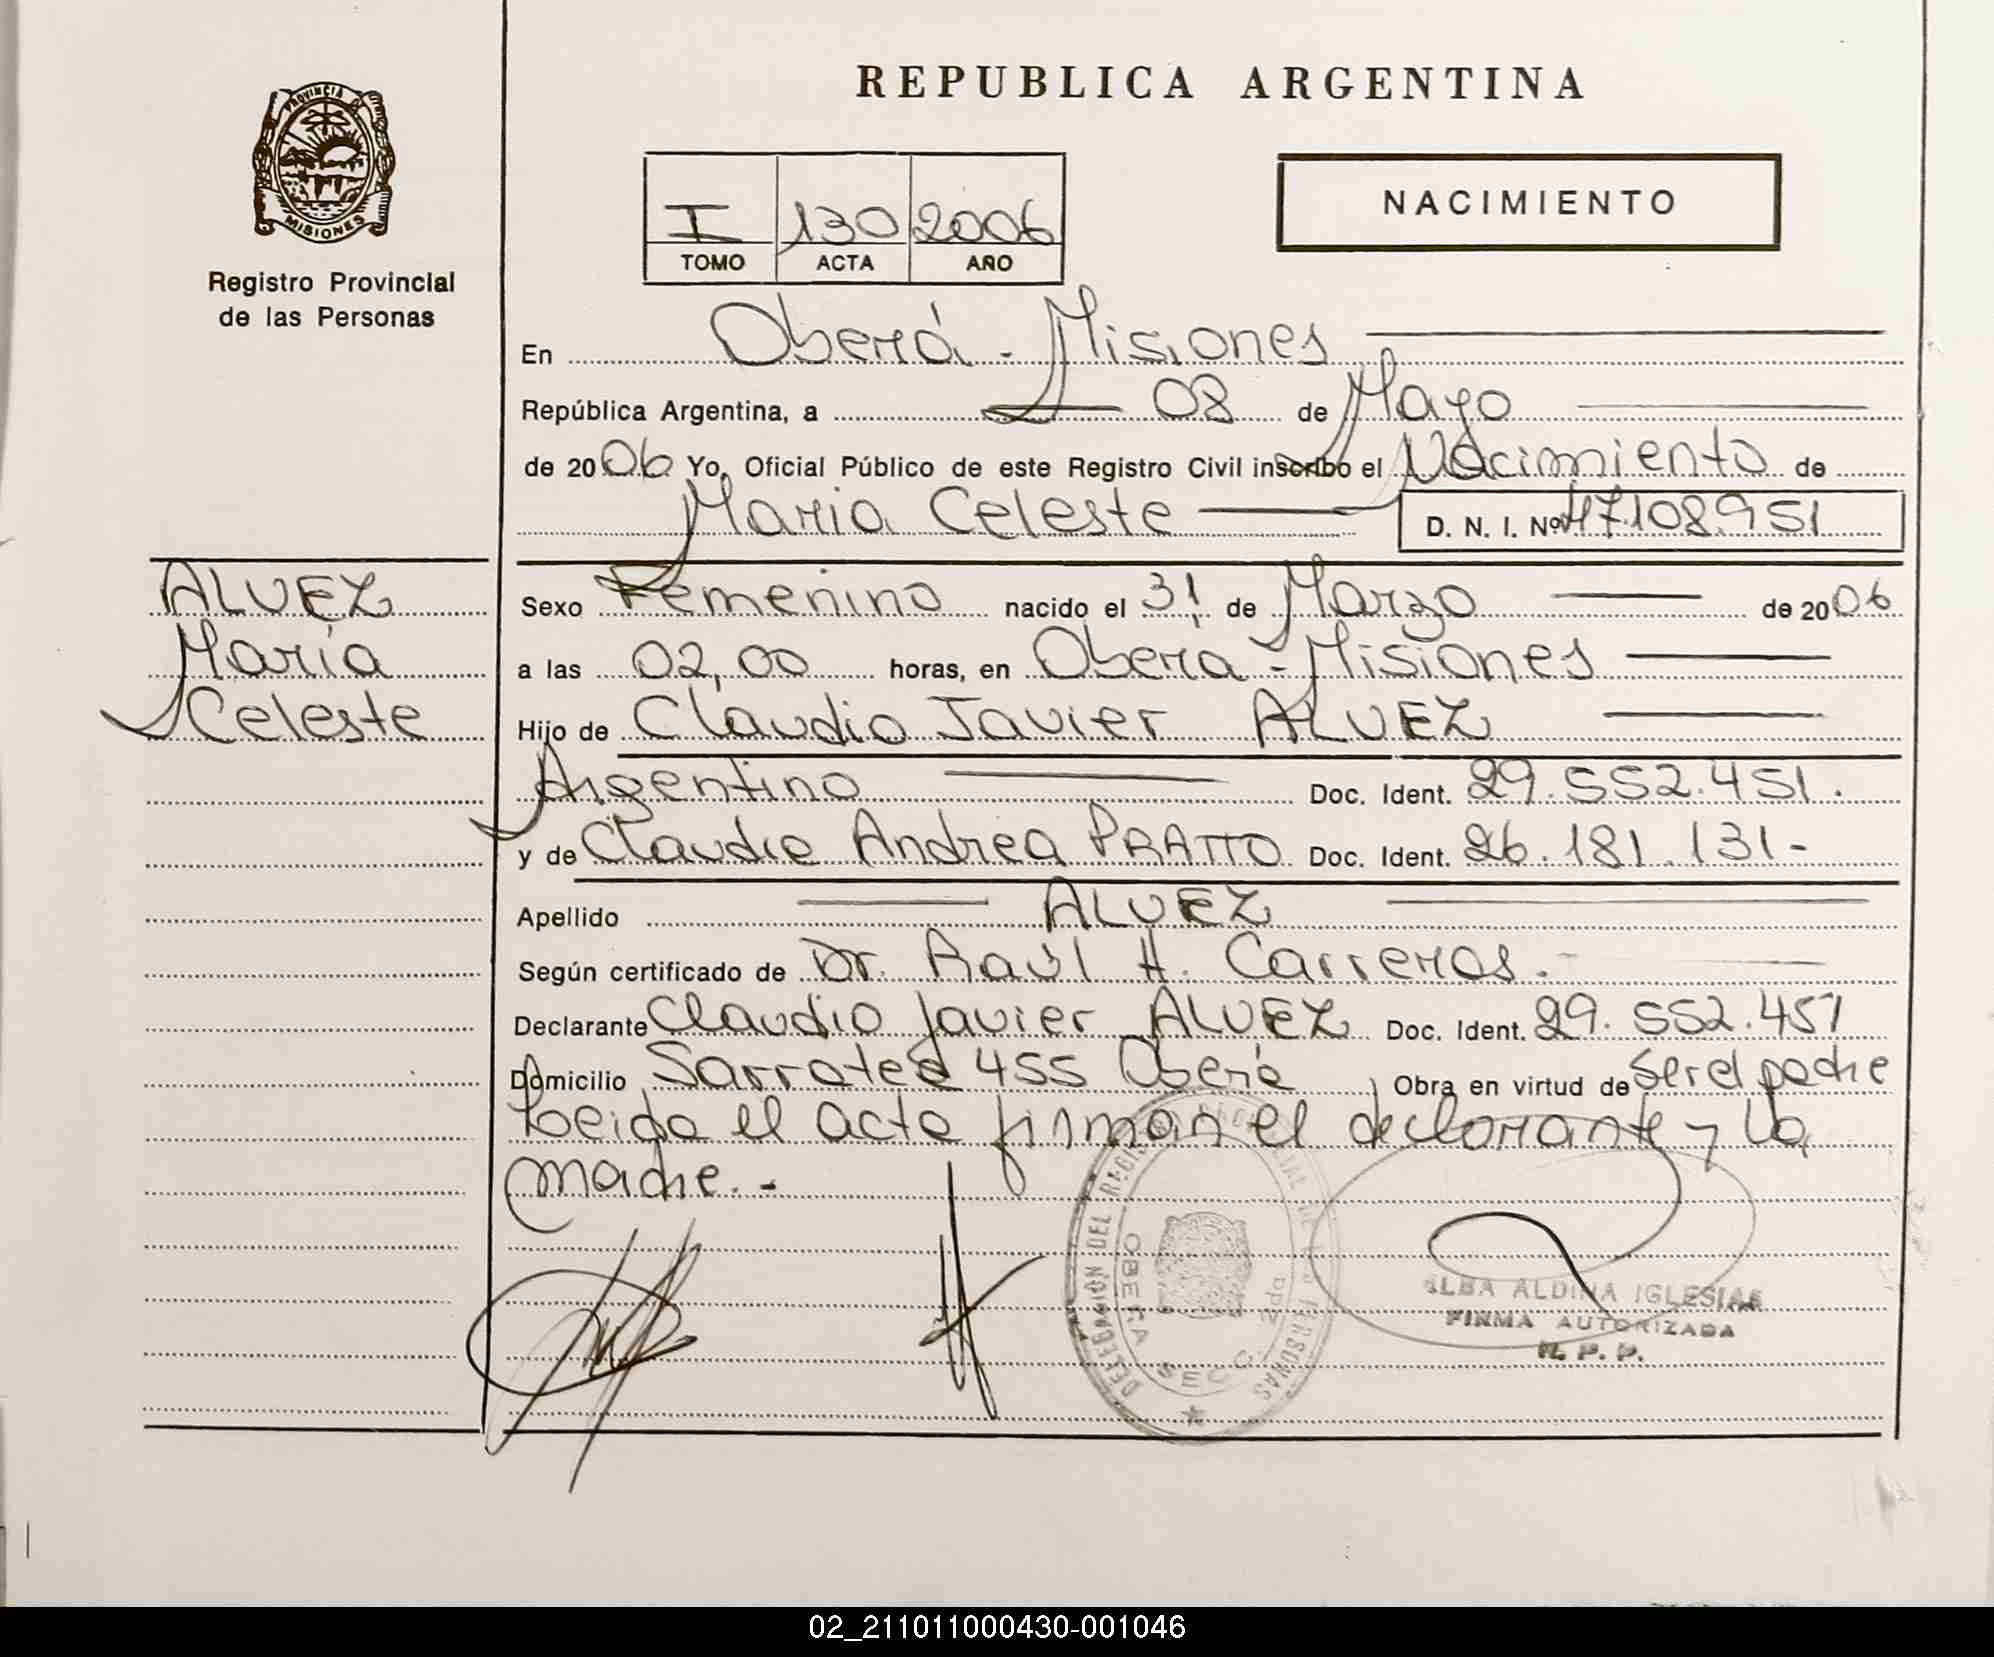 REPUBLICA ARGENTINA
PROVINCIA
MISIONES
Registro Provincial
de las Personas
I 130 2006
TOMO ACTA AÑO
NACIMIENTO
En Oberá - Misiones
República Argentina, a 08 de Mayo
de 2006 Yo, Oficial Público de este Registro Civil inscribo el Nacimiento de
Maria Celeste D. N. I. Nº 47.108.951
ALVEZ
María
Celeste
Sexo Femenino nacido el 31 de Marzo de 2006
a las 02,00 horas, en Oberá - Misiones
Hijo de Claudio Javier ALVEZ
Argentino Doc. Ident. 29.552.451.
y de Claudia Andrea PRATTO Doc. Ident. 26.181.131-
Apellido ALVEZ
Según certificado de Dr. Raúl H. Carreras.
Declarante Claudio Javier ALVEZ Doc. Ident. 29.552.451
Domicilio Sarratea 455 Oberá Obra en virtud de ser el padre
Leida el acta firman el declarante y la
madre.-
DELEGACION DEL REGISTRO PROVINCIAL DE LAS PERSONAS
OBERA SECC. 2da
ALBA ALDINA IGLESIAS
FIRMA AUTORIZADA
R. P. P.
02_211011000430-001046